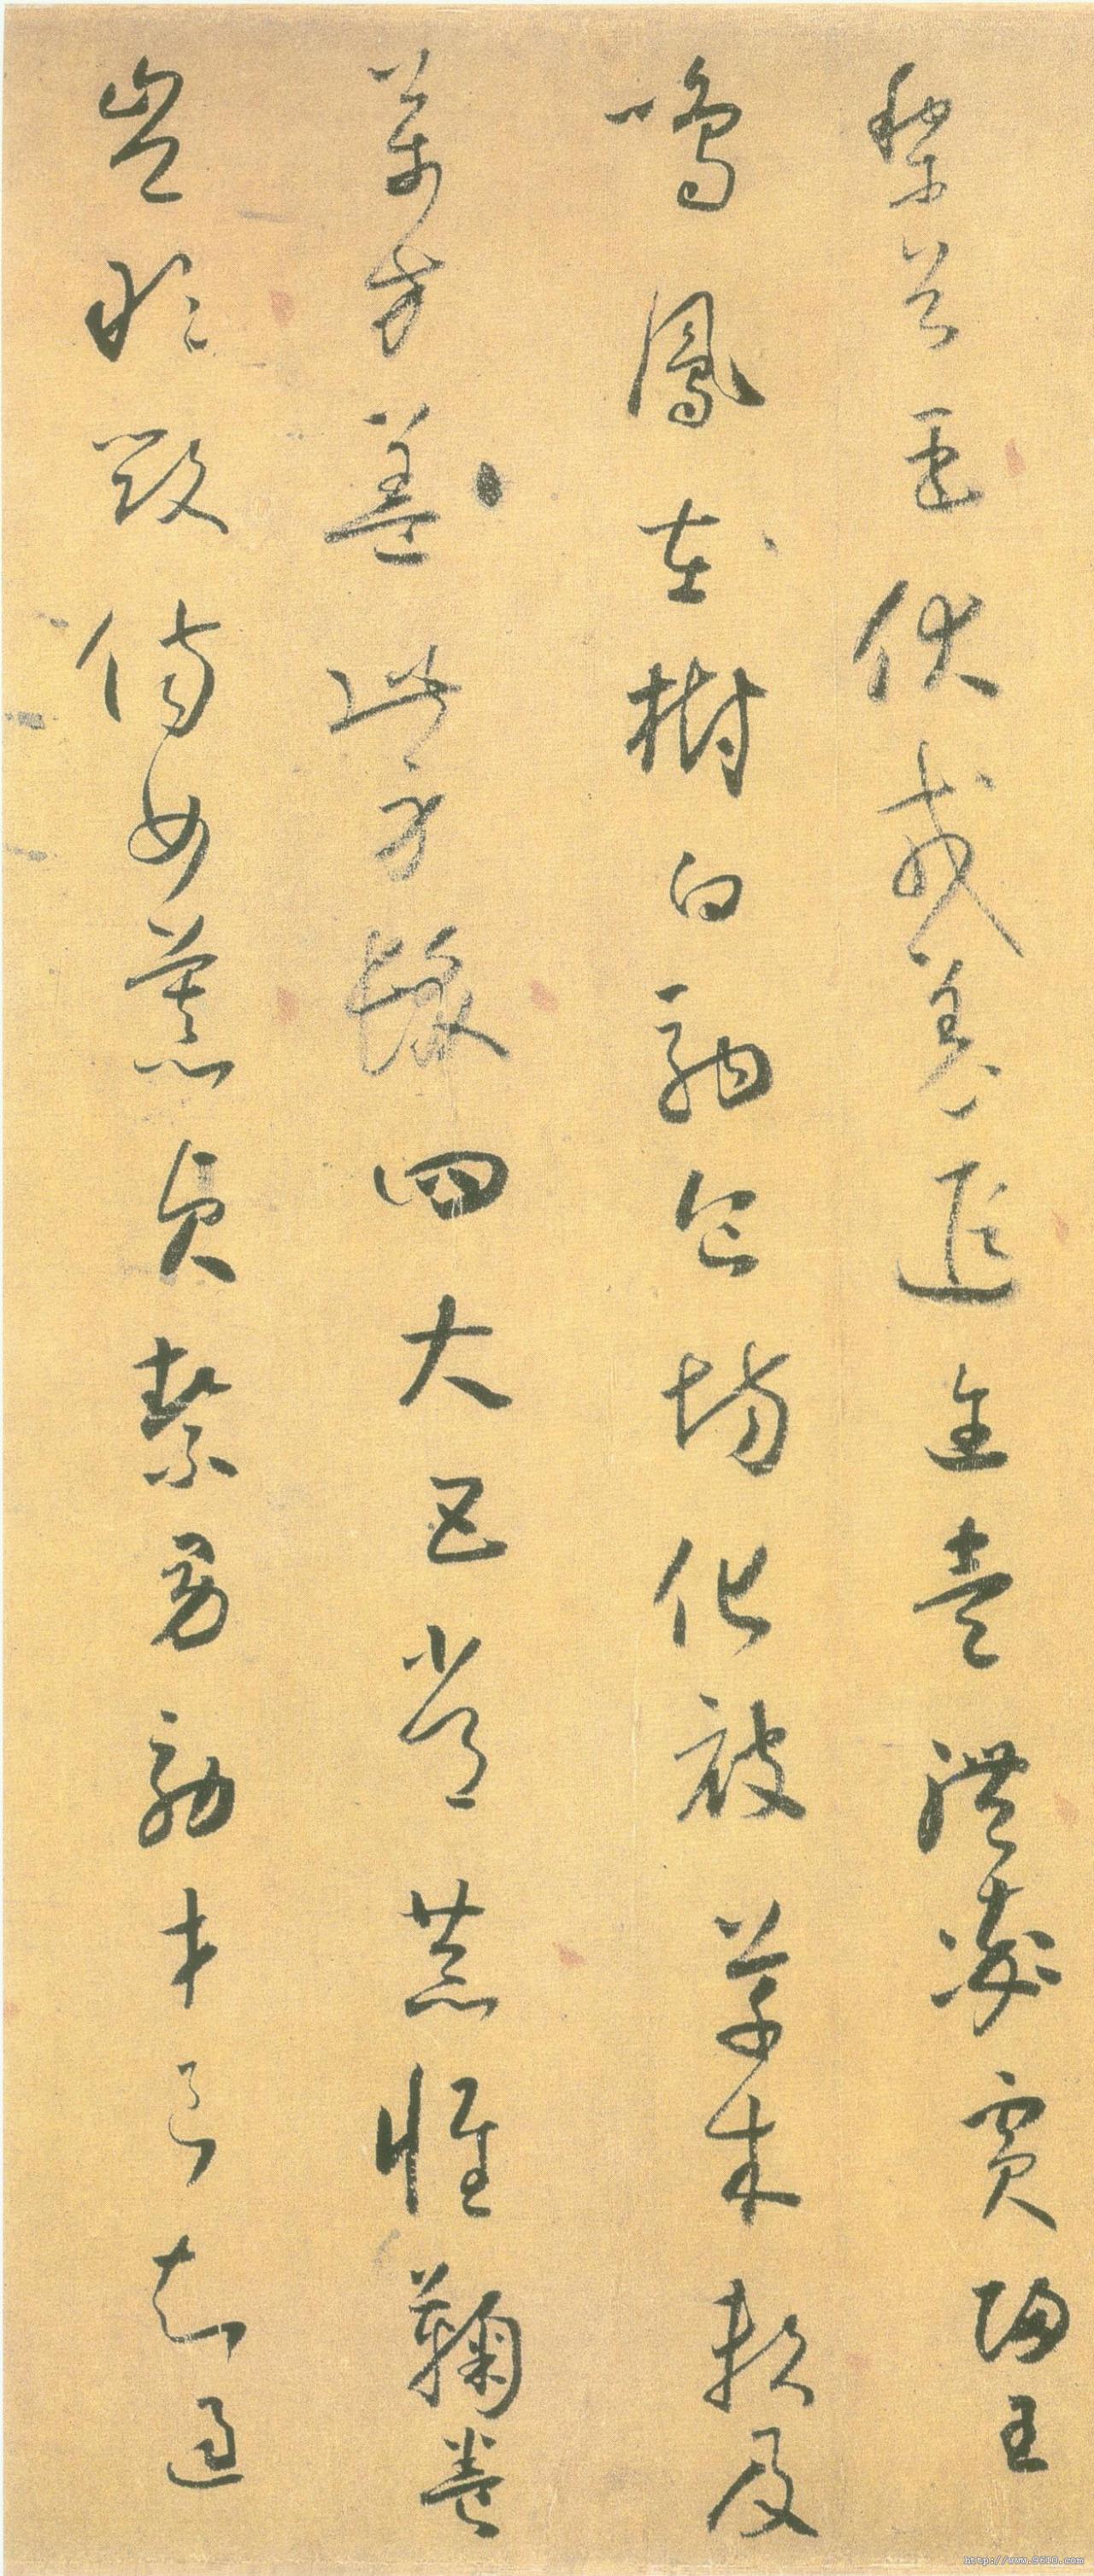 黎首臣伏戎羌遐邇壹體率賓歸王
鳴鳳在樹白駒食場化被草木賴及
萬方蓋此身髮四大五常恭惟鞠養
豈敢毀傷女慕貞絜男效才良知過
http://www.9610.com